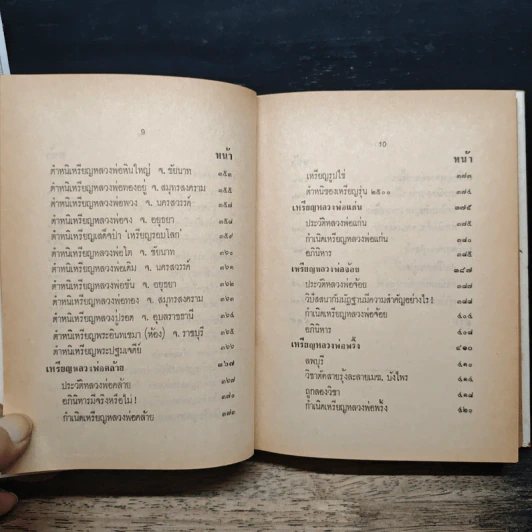 9
หน้า
ตำหนิเหรียญหลวงพ่อหินใหญ่ จ. ชัยนาท ๑๕๑
ตำหนิเหรียญหลวงพ่อทองอยู่ จ. สมุทรสงคราม ๑๕๕
ตำหนิเหรียญหลวงพ่อพวง จ. นครสวรรค์ ๑๕๗
ตำหนิเหรียญหลวงพ่อจง จ. อยุธยา ๑๕๘
ตำหนิเหรียญเสด็จป่า (เหรียญรอบโลก) ๑๕๙
ตำหนิเหรียญหลวงพ่อโต จ. ชัยนาท ๑๖๐
ตำหนิเหรียญหลวงพ่อเดิม จ. นครสวรรค์ ๑๖๑
ตำหนิเหรียญหลวงพ่อขัน จ. อยุธยา
ตำหนิเหรียญหลวงพ่อทอง จ. สมุทรสงคราม
ตำหนิเหรียญหลวงปู่รอด จ. อุบลราชธานี
ตำหนิเหรียญพระอินทเขมา (ห้อง) จ. ราชบุรี ๑๖๕
ตำหนิเหรียญพระปฐมเจดีย์ ๑๖๖
เหรียญหลวงพ่อคล้าย ๑๖๗
ประวัติหลวงพ่อคล้าย ๑๖๗
อภินิหารมีจริงหรือไม่ ! ๑๗๐
กำเนิดเหรียญหลวงพ่อคล้าย ๑๗๓
10
หน้า
เหรียญรูปไข่ ๑๗๓
ตำหนิของเหรียญรุ่น ๒๕๐๐ ๑๗๔
เหรียญหลวงพ่อแก่น ๑๗๕
ประวัติหลวงพ่อแก่น ๑๗๕
กำเนิดเหรียญหลวงพ่อแก่น ๑๘๐
อภินิหาร ๑๘๕
เหรียญหลวงพ่อจ้อย ๑๘๗
ประวัติหลวงพ่อจ้อย ๑๘๗
วิปัสสนากัมมัฏฐานมีความสำคัญอย่างไร ! ๑๙๗
กำเนิดเหรียญหลวงพ่อจ้อย
อภินิหาร ๒๐๙
เหรียญหลวงพ่อพริ้ง ๒๑๐
ลพบุรี ๒๑๐
วิชาดัดคลายรุ้งละลายเมฆ, บังไพร
ถูกลองวิชา
กำเนิดเหรียญหลวงพ่อพริ้ง ๒๒๐